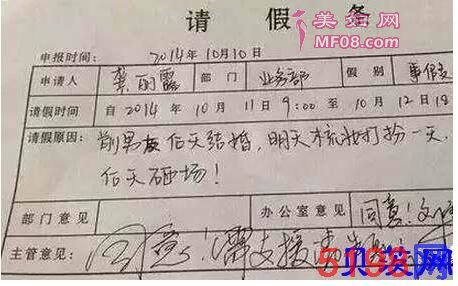 请假条
美妆网
MF08.com
申报时间： 2014年10月10日
申请人 龚丽露 部门 业务部 假别 事假
请假时间 自2014年10月11日9:00至10月12日18
请假原因： 前男友后天结婚,明天梳妆打扮一天.
后天砸场!
部门意见 办公室意见 同意!
主管意见： 同意!需支援请告知
5108
贝投网